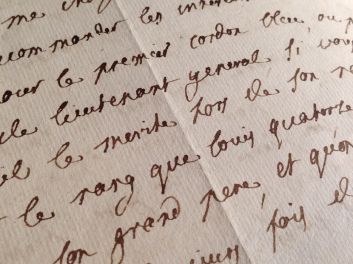 me
recommander les
pour le premier cordon bleu ou p
le lieutenant general si vou
il le merite lors de son re
le rang que louis quatorze
son grand pere, et qu'on
fois d